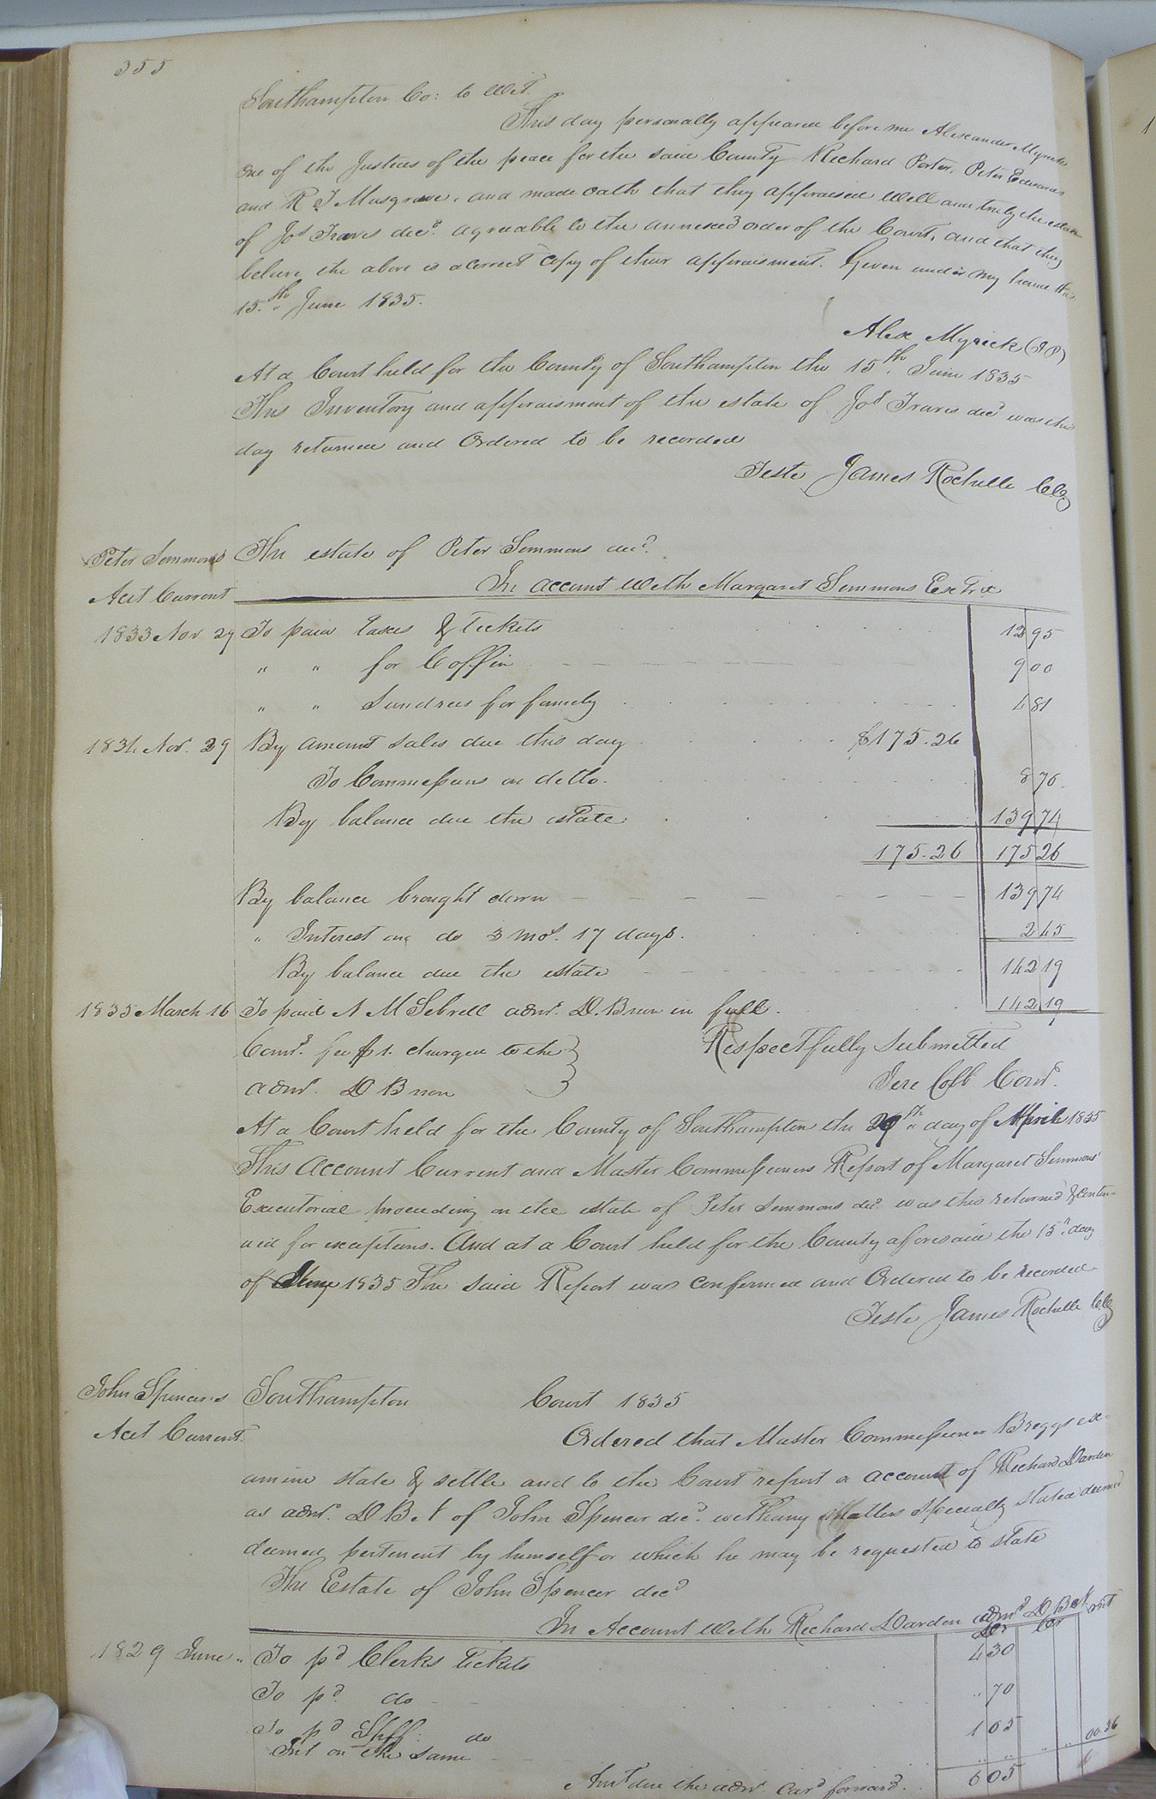 355
Southampton Co: to Wit.
This day personally appeared before me Alexander Myrick
one of the Justices of the peace for the said County Richard Porter, Peter Edwards
and R J Musgrave, and made oath that they appraised well and truly the estate
of Jos Travis decd. agreeable to the annexed order of the Court, and that they
believe the above is a correct copy of their appraisment. Given under my hand this
15.th June 1835.
Alex Myrick (JP)
At a Court held for the County of Southampton the 15th. June 1835
This Inventory and appraisment of the estate of Jos Travis decd was this
day returned and Ordered to be recorded
Teste James Rochelle Clk
Peter Simmons The estate of Peter Simmons decd.
Acct Current In account with Margaret Simmons Extrix
1833 Nov 29 To paid taxes & tickets 13 95
" " for Coffin 9 00
" " Sundries for family 4 81
1834 Nov. 29 By amount sales due this day $175.26
To Commissions on ditto. 8 76
By balance due the estate 139 74
175.26 175 26
By balance brought down 139 74
" Interest on do 3 mos. 17 days. 2 45
By balance due the estate 142 19
1835 March 16 To paid N M Sebrell admr. D. B non in full. 142 19
Comrs. fee $1. charged to the Respectfully submitted
admr. D B non Jere Cobb Comr.
At a Court held for the County of Southampton the 20th day of April 1835
This Account Current and Master Commissioners Report of Margaret Simmons'
Executorial proceeding on the estate of Peter Simmons decd. was this returned & contin-
ued for exceptions. And at a Court held for the County aforesaid the 15th. day
of June 1835 The said Report was confirmed and Ordered to be recorded
Teste James Rochelle Clk
John Spencer's Southampton Court 1835
Acct Current. Ordered that Master Commissioner Briggs ex-
amine state & settle and to the Court report a account of Richard Darden
as admr. D B N of John Spencer decd. with any matters specially stated deemed
deemed pertinent by himself or which he may be requested to state
The Estate of John Spencer decd
In Account with Richard Darden admr D B N
Dr Cr Int
1829 June " To pd Clerks tickets 4 30
To pd. do " 70
To pd Shff. do 1 05
Int on the same 00.36
Amt due the admr. Card forward. 6 05